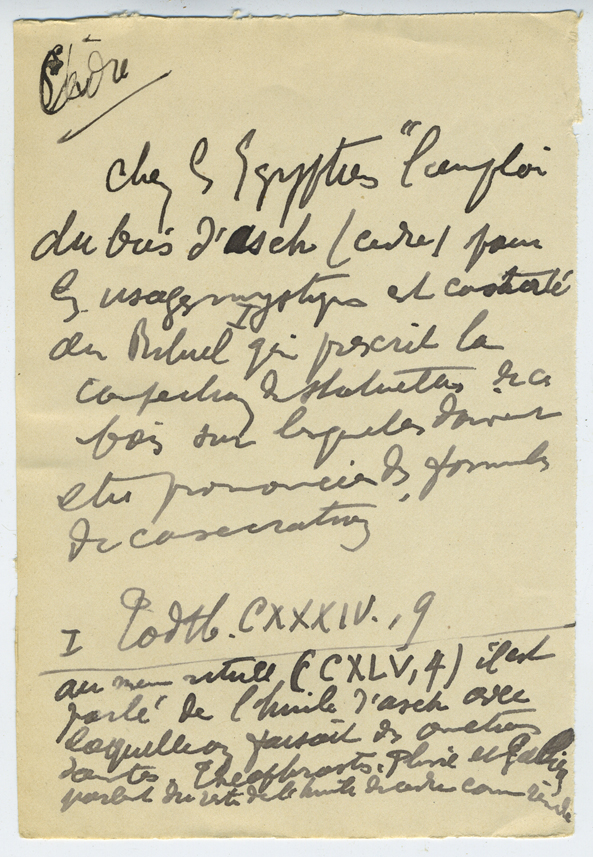 Cèdre
chez les Egyptiens "l'emploi
du bois d'asch (cedre) pour
les usages mystiques est constaté
au Rituel I qui prescrit la
confection de statuettes de ce
bois sur lesquelles doivent
etre prononcées des formules
de consecration
I Todtb. CXXXIV., 9
au meme rituel (CXLV, 4) il est
parlé de l'huile d'asch avec
laquelle on faisait des onctions
saintes. Theophraste, Pline et Galien
parlent du reste de l'huile de cedre comme